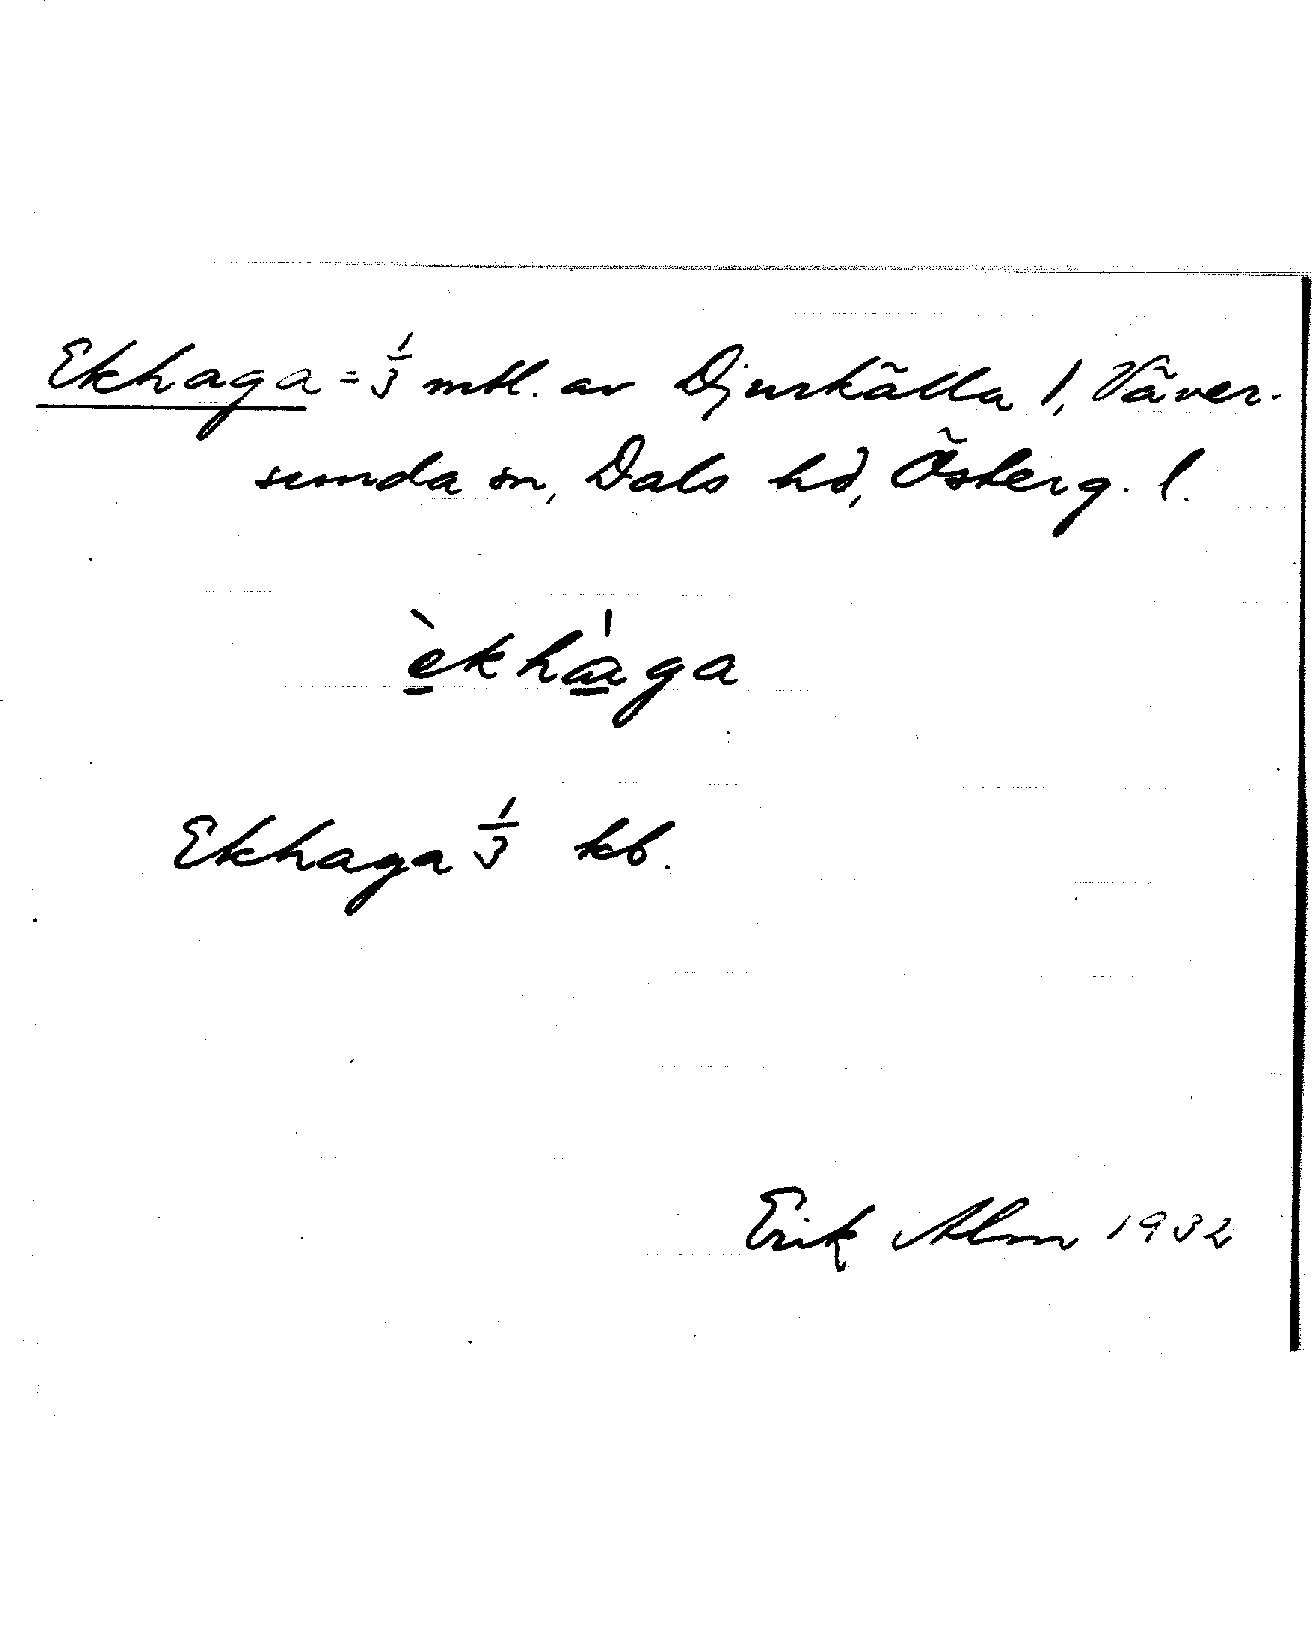 Ekhaga = 1/3 mtl. av Djurkälla 1, Väver-
sunda sn, Dals hd, Österg. l.
èkhàga
Ekhaga 1/3 kb.
Erik Alm 1932